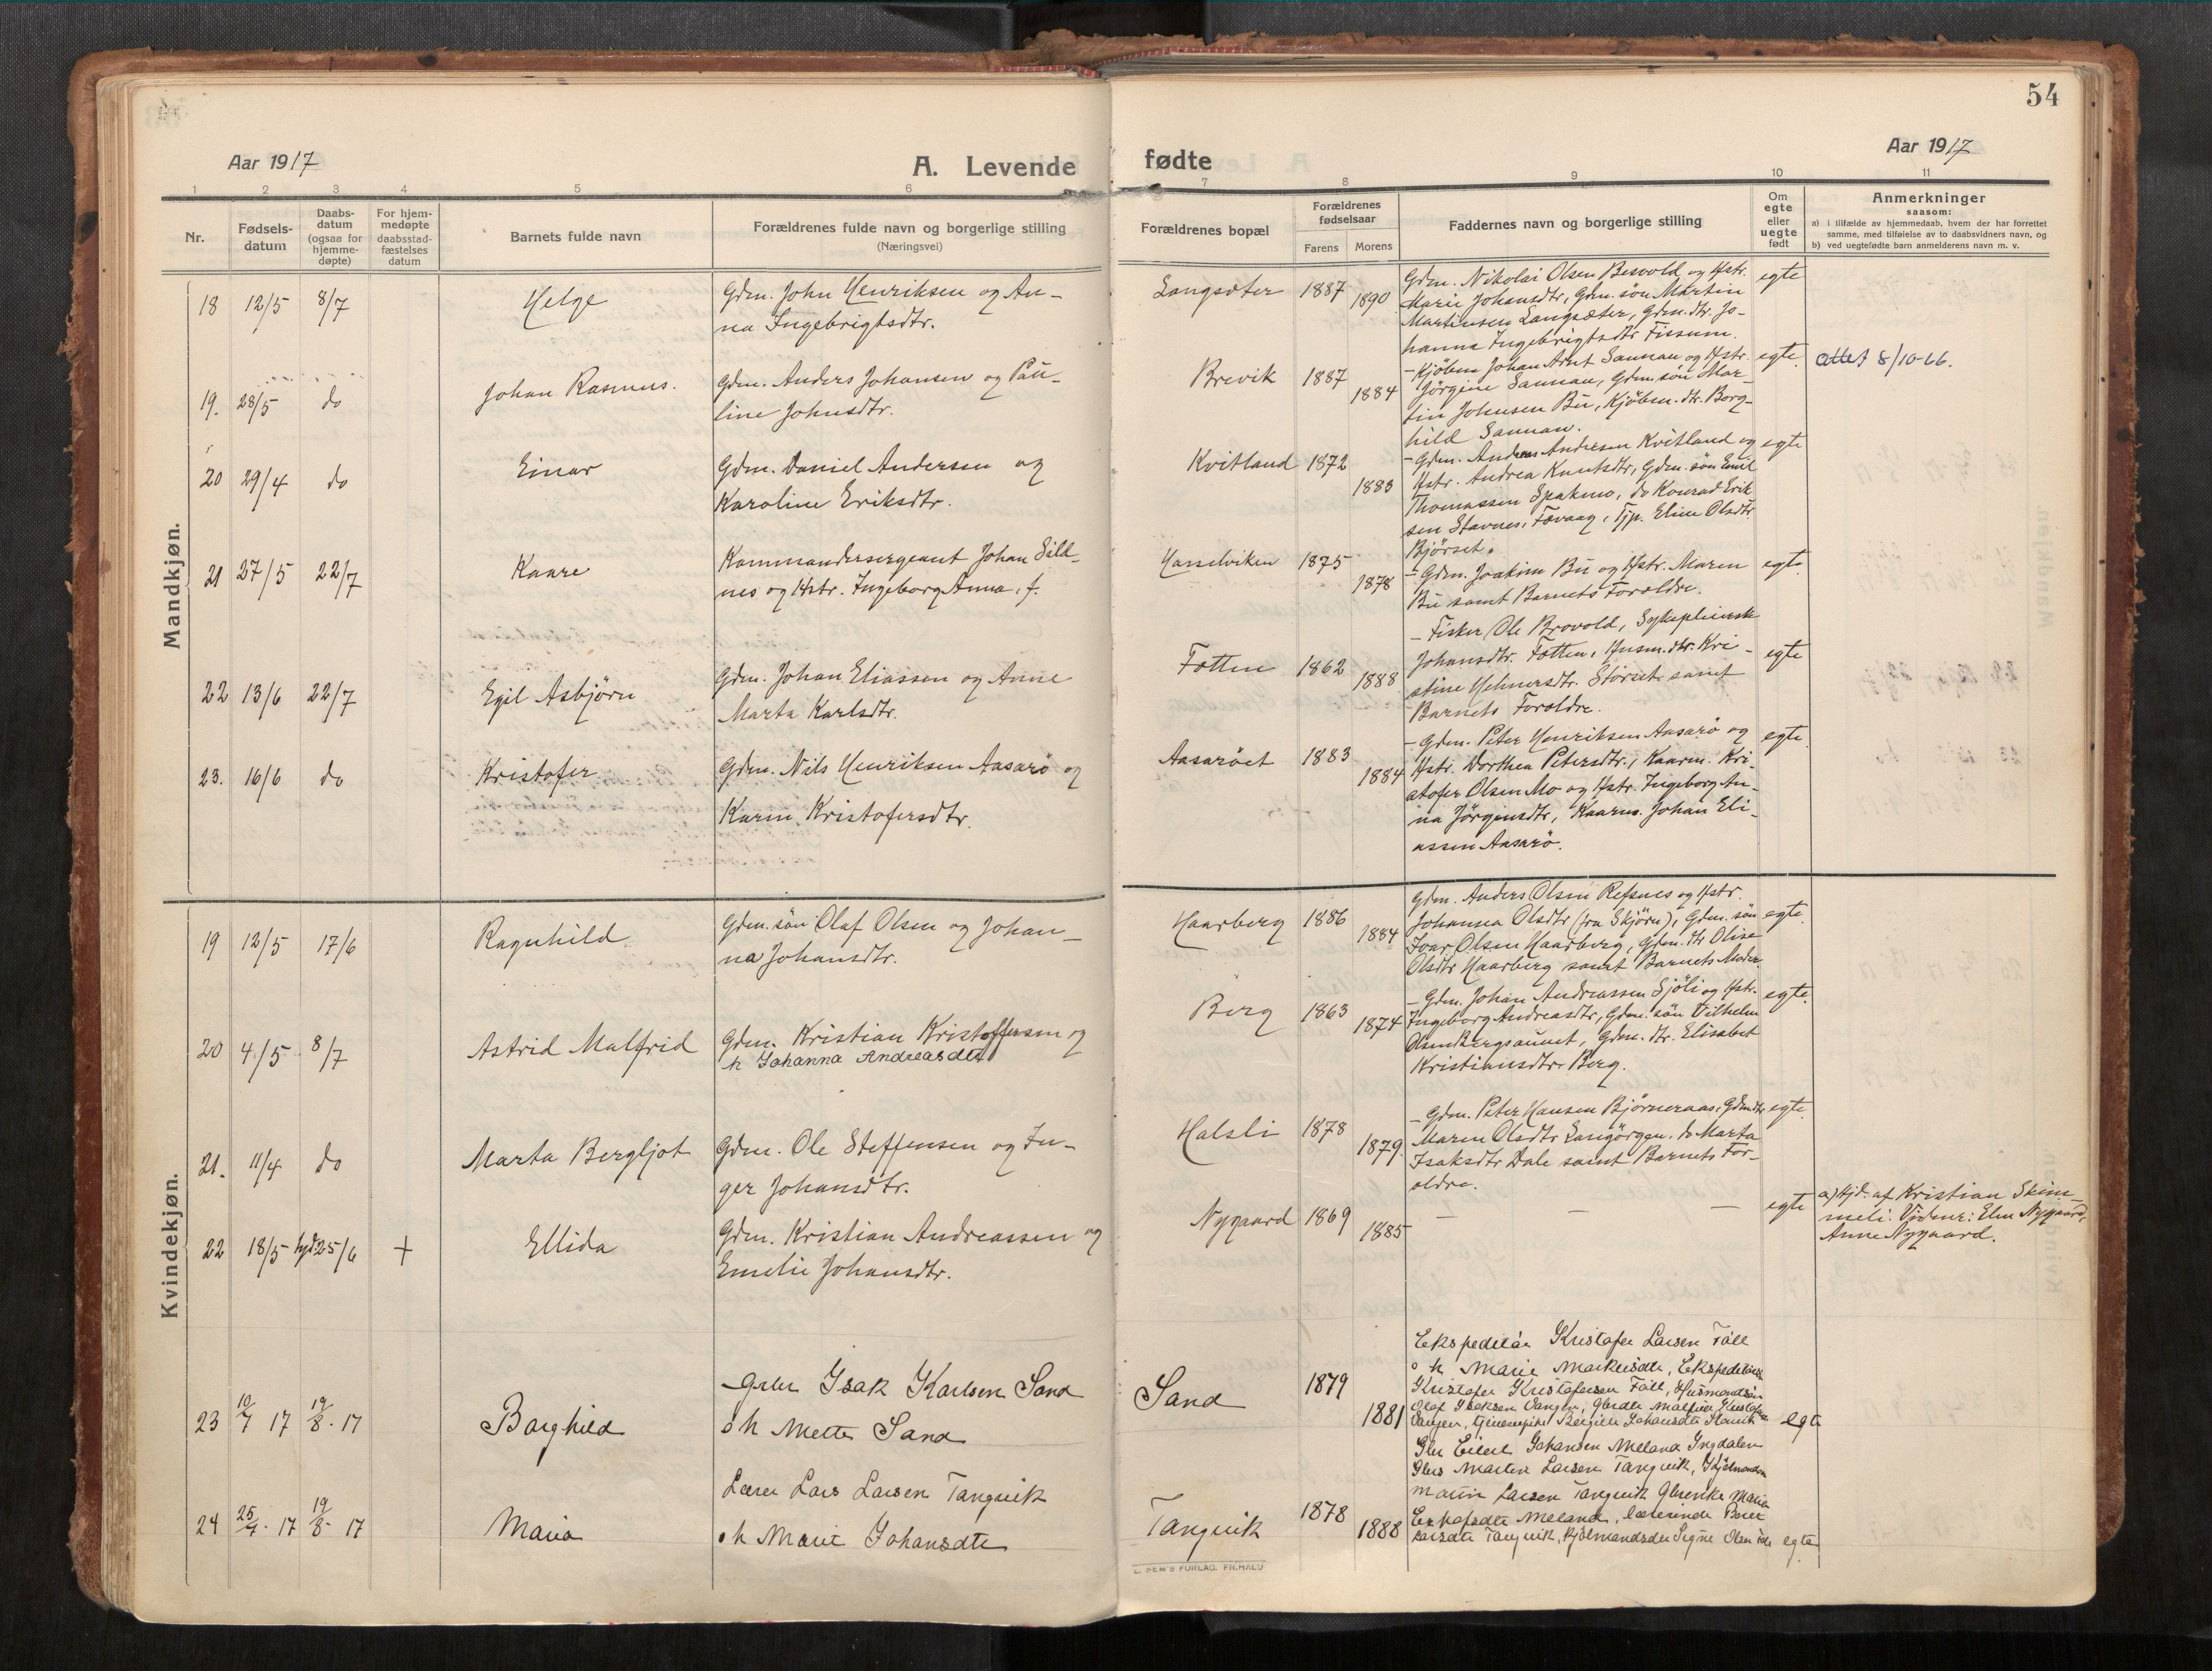 54
Aar 1917
A. Levende
fødte
Aar 1917
1 2 3 4 5 6 7 8 9 10 11
Nr.
Fødsels-
datum
Daabs-
datum
(ogsaa for
hjemme-
døpte)
For hjem-
medøpte
daabsstad-
fæstelses
datum
Barnets fulde navn
Forældrenes fulde navn og borgerlige stilling
(Næringsvei)
Forældrenes bopæl
Forældrenes
fødselsaar
Farens
Morens
Faddernes navn og borgerlige stilling
Om
egte
eller
uegte
født
Anmerkninger
saasom:
a) i tilfælde av hjemmedaab, hvem der har forrettet
samme, med tilføielse av to daabsvidners navn, og
b) ved uegtefødte barn anmelderens navn m. v.
Mandkjøn.
18 12/5 8/7 Helge
Gdm. John Henriksen og An-
na Ingebrigtsdtr.
Langsæter 1887 1890
Gdm. Nikolai Olsen Besvold og Hstr.
Marie Johansdtr, Gdm. søn Martin
Martinsen Langsæter, Gdm. dtr. Jo-
hanna Ingebrigtsdtr Fissum.
egte
19. 28/5 do Johan Rasmus.
Gdm. Anders Johansen og Pau-
line Johnsdtr.
Brevik 1887 1884
- Kjöbm Johan Arnt Sannan og Hstr.
Jörgine Sannan, Gdm. søn Mar-
tin Johnsen Bu, Kjöbm. dtr. Borg-
hild Sannan.
egte.
attest 8/10-66.
20 29/4 do Einar
Gdm. Daniel Andersen og
Karoline Eriksdtr.
Kvitland 1872 1883
- Gdm. Anders Andersen Kvitland og
Hstr. Andrea Knutsdtr, Gdm. søn Emil
Thomassen Spakmo, do Konrad Erik-
sen Stavnes, Fævaag, Tjp. Eline Olsdtr
Bjørset.
egte
21 27/5 22/7 Kaare
Kommandersergeant Johan Sild-
nes og Hstr. Ingeborg Anna, f.
Hasselviken 1875 1878
- Gdm. Joakim Bu og Hstr. Maren
Bu samt Barnets Forældre.
egte
22 13/6 22/7 Egil Asbjörn
Gdm. Johan Eliassen og Anne
Marta Karlsdtr.
Fætten 1862 1888
- Fisker Ole Brovold, Sykepleiersk
Johansdtr. Fætten, Husm. dtr. Kri-
stine Helmersdtr. Störset samt
Barnets Forældre.
egte
23. 16/6 do Kristofer
Gdm. Nils Henriksen Aasarö og
Karen Kristofersdtr.
Aasaröet 1883 1884
- Gdm. Peter Henriksen Aasarö og
Hstr. Dorthea Petersdtr, Kaarm. Kri-
stofer Olsen Mo og Hstr. Ingeborg An-
na Jörgensdtr, Kaarm. Johan Eli-
assen Aasarö.
egte
Kvindekjøn.
19 12/5 17/6 Ragnhild
Gdm. søn Olaf Olsen og Johan-
na Johansdtr.
Haarberg 1886 1884
Gdm. Anders Olsen Refsnes og Hstr.
Johanna Olsdtr (fra Skjörn), Gdm. søn
Ivar Olsen Haarberg, Gdm. dtr Olise
Olsdtr Haarberg samt Barnets Moder.
egte.
20 4/5 8/7 Astrid Malfrid
Gdm. Kristian Kristoffersen og
h Johanna Andreasdtr
Berg 1863 1874
- Gdm. Johan Andreassen Sjöli og Hstr.
Ingeborg Andreasdtr, Gdm. søn Vilhelm
Olsen Bergsaunet, Gdm. dtr. Elisabet
Kristiansdtr Berg.
egte.
21. 11/4 do Marta Bergljot
Gdm. Ole Steffensen og In-
ger Johansdtr.
Halsli 1878 1879
- Gdm. Peter Hansen Björneraas, Gdm dtr
Maren Olsdtr Langörgen, do Marta
Isaksdtr Dale samt Barnets For-
ældre.
egte.
22 18/5 hjd. 25/6 + Ellida
Gdm. Kristian Andreassen og
Emelie Johansdtr.
Nygaard 1869 1885
- - -
egte
a) Hjd. af Kristian Skim-
meli. Vidner: Elen Nygaard,
Anne Nygaard.
23 10/7 17 19/8 - 17 Borghild
Grbr Isak Karlsen Sand
o h Mette Sand
Sand 1879 1881
Ekspeditør Kristofer Larsen Fall
o h Marie Markusdtr, Ekspeditørs
Kristofer Kristofersen Fall, Husmandsøn
Olaf Isaksen Vangen
egte
24 25/7 - 17 19/8 - 17 Maria
Lærer Lars Larsen Tangvik
o h Marie Johansdtr
Tangvik 1878 1888
Gbr Eilert Johansen Meland Ingdalen
Gbrs Marten Larsen Tangvik,
Larsen Tangvik Gbrenke Maria
Meland,
Larsdtr Tangvik,
egte
E. SEM'S FORLAG, FR.HALD